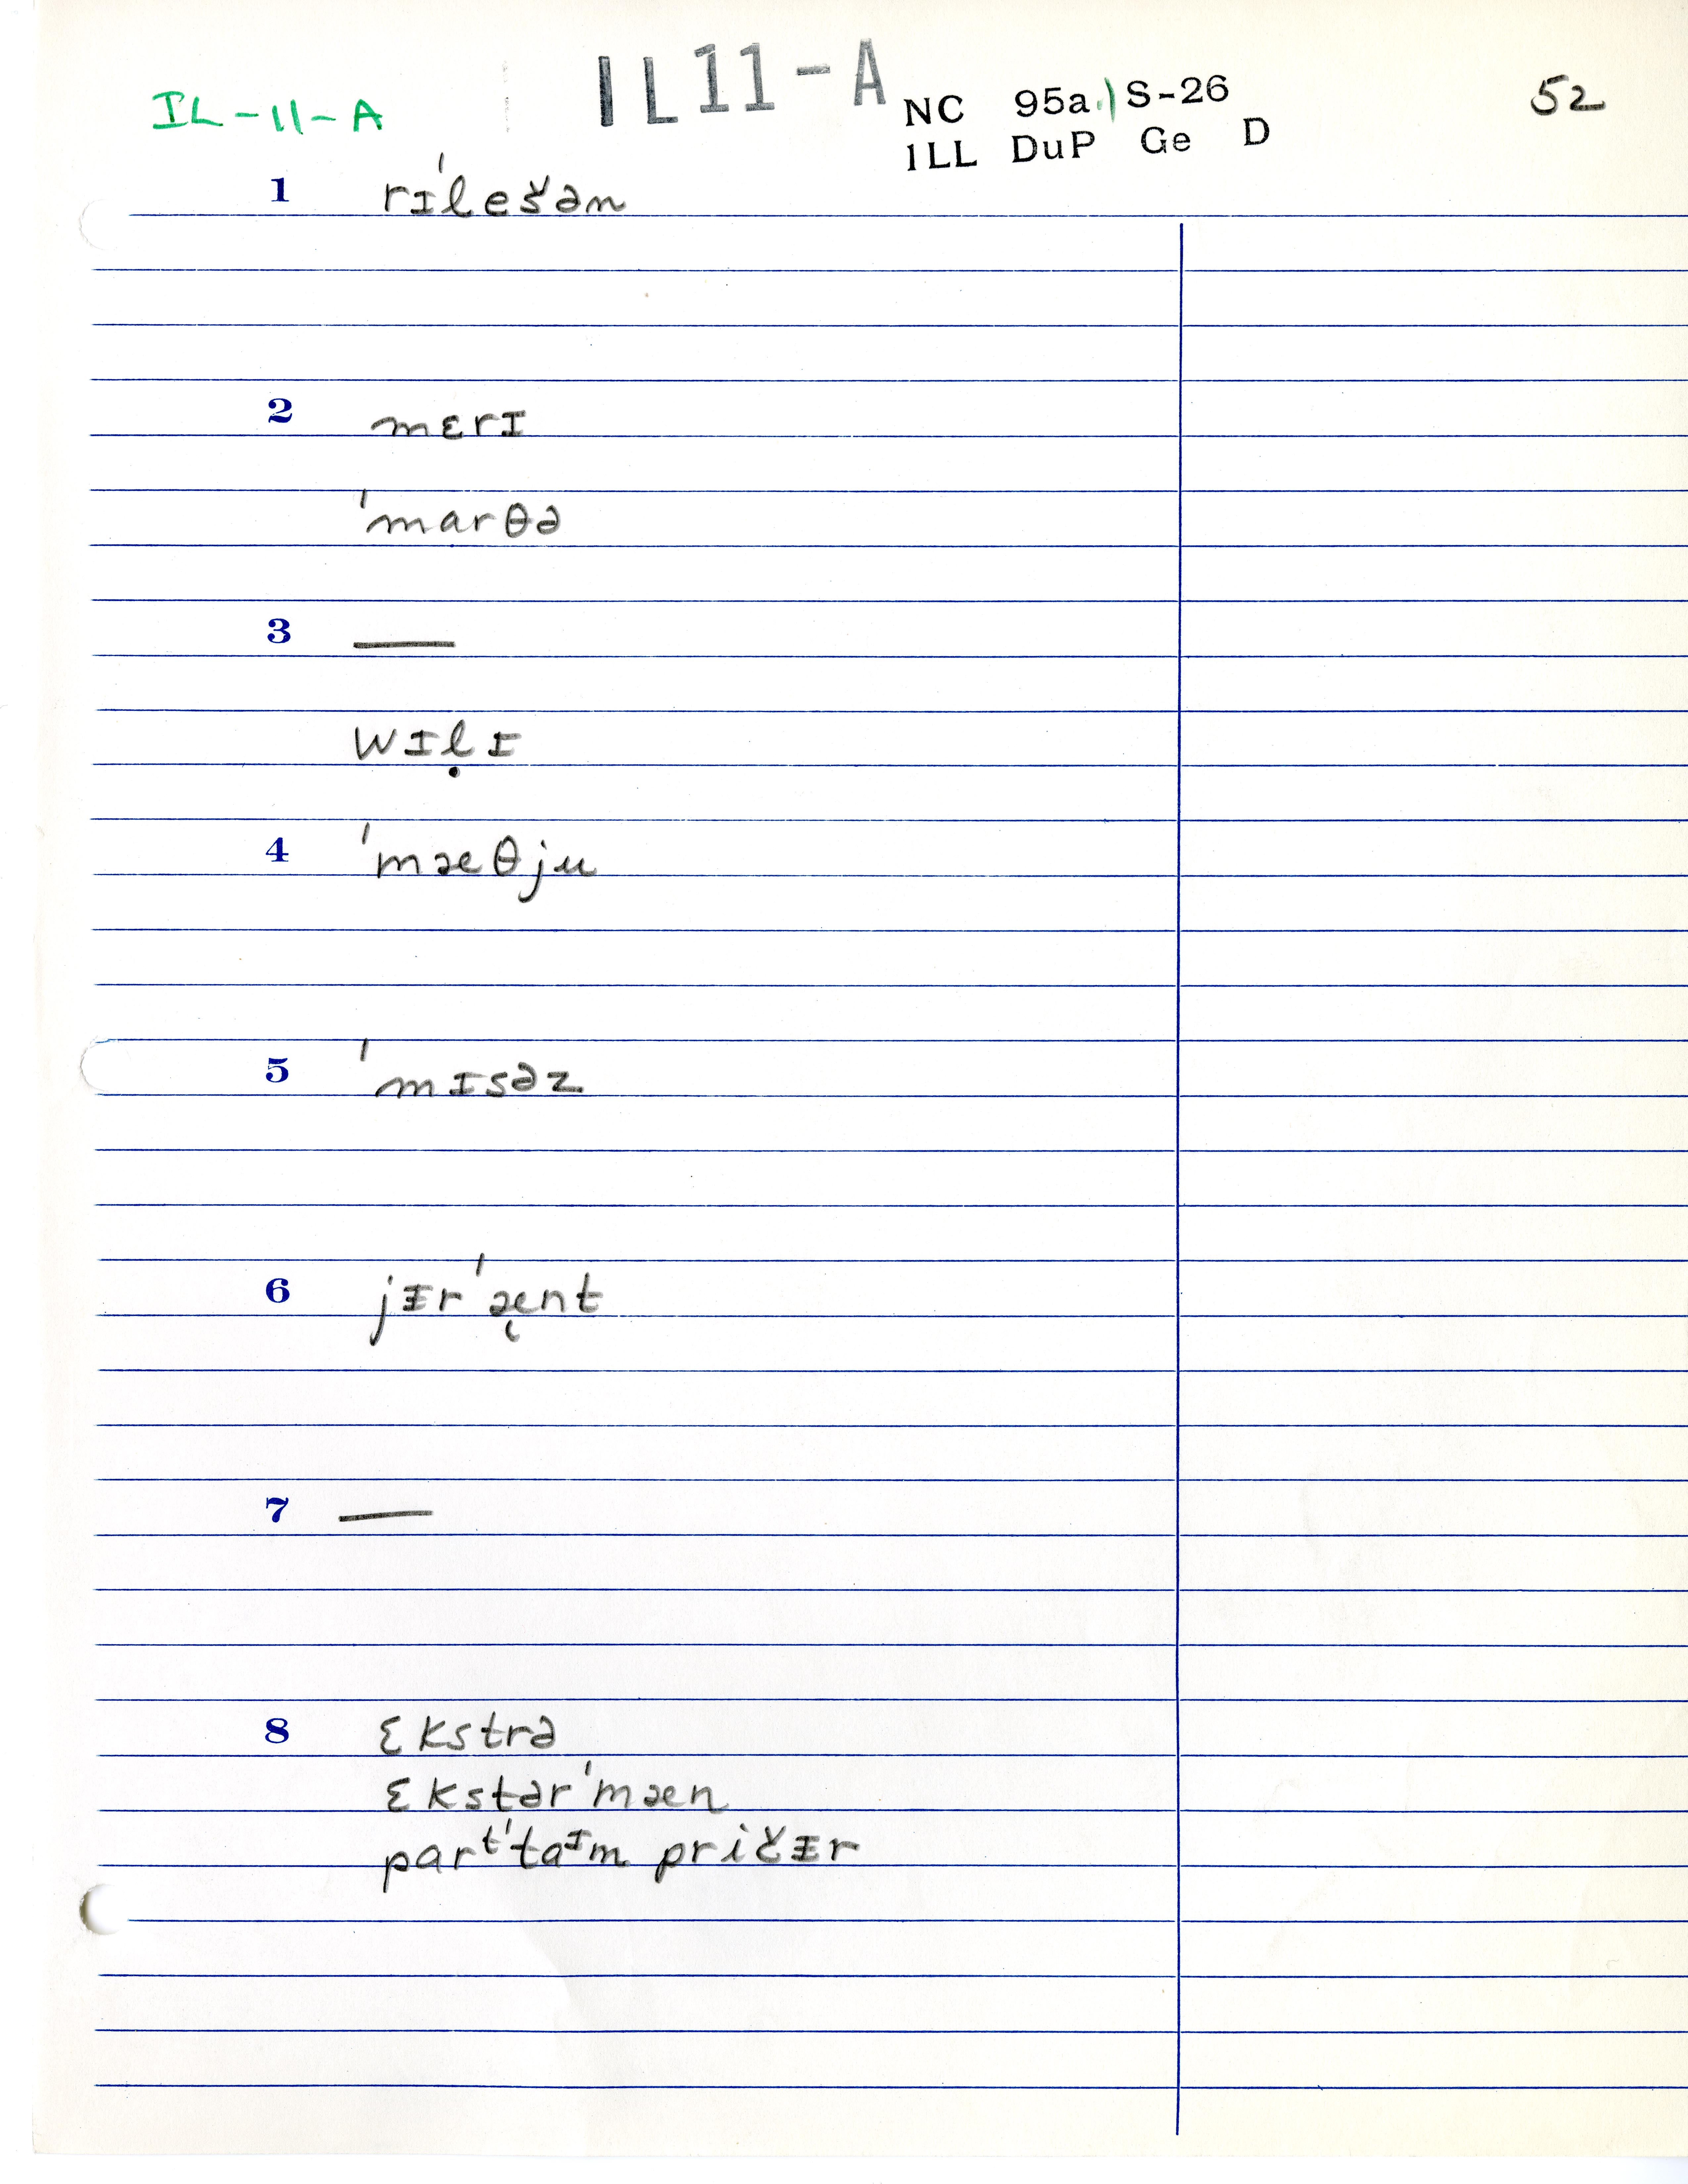 IL-11-A
IL11-A
NC 95a.) S-26
ILL DuP Ge D
52
1 rɪˈlešən
2 mɛrɪ
ˈmarθə
3 —
wɪḷɪ
4 ˈmæθju
5 ˈmɪsəz
6 jᵻrˈæ̨nt
7 —
8 ɛkstrə
ɛkstərˈmæn
parᵗˈtaᶦm pričᵻr